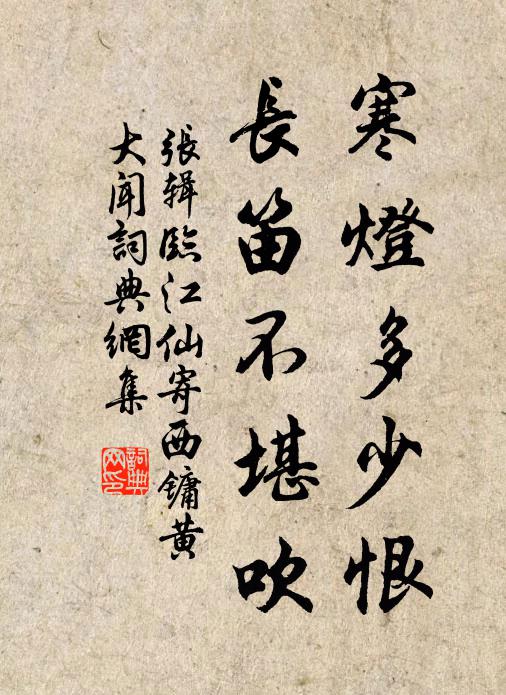 寒燈多少恨
長笛不堪吹
張辑臨江仙寄西鏞黄
大闻詞典網集
詞典
网印